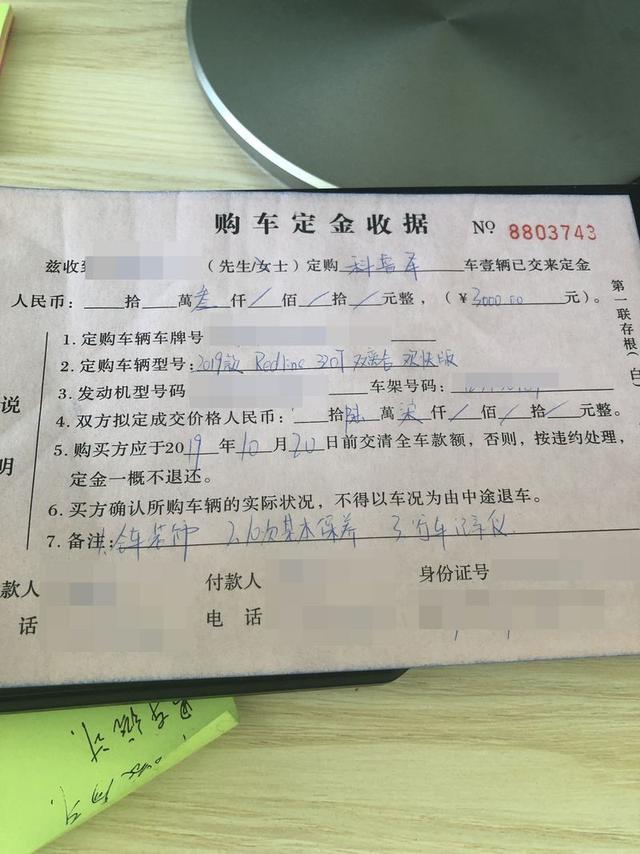 购车定金收据 № 8803743
兹收到 （先生/女士）定购 科鲁泽 车壹辆已交来定金
人民币： 拾 萬 叁 仟 / 佰 / 拾 / 元整，（￥3000.00 元）。
1. 定购车辆车牌号
2. 定购车辆型号：2019款 Redline 320T 双离合 欢快版
3. 发动机型号码 车架号码：
4. 双方拟定成交价格人民币： 拾 陆 萬 柒 仟 / 佰 / 拾 / 元整。
5. 购买方应于2019年10月20日前交清全车款额，否则，按违约处理，
定金一概不退还。
6. 买方确认所购车辆的实际状况，不得以车况为由中途退车。
7. 备注：1. 全车装饰 2. 10次基本保养 3. 行车记录仪
说
明
第一联存根（白）
款人 付款人 身份证号
话 电 话